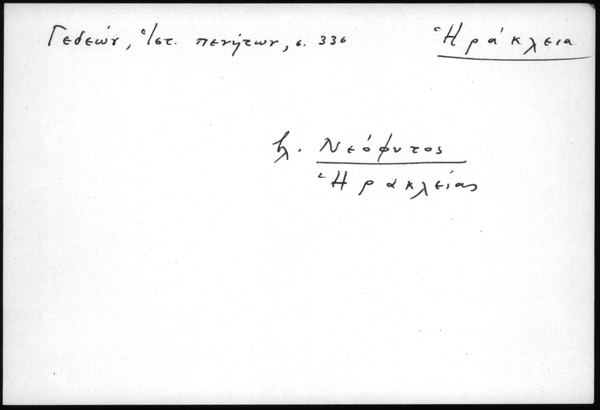 Γεδεών, Ἱστ. πενήτων, σ. 336 Ἡράκλεια
βλ. Νεόφυτος
Ἡρακλείας